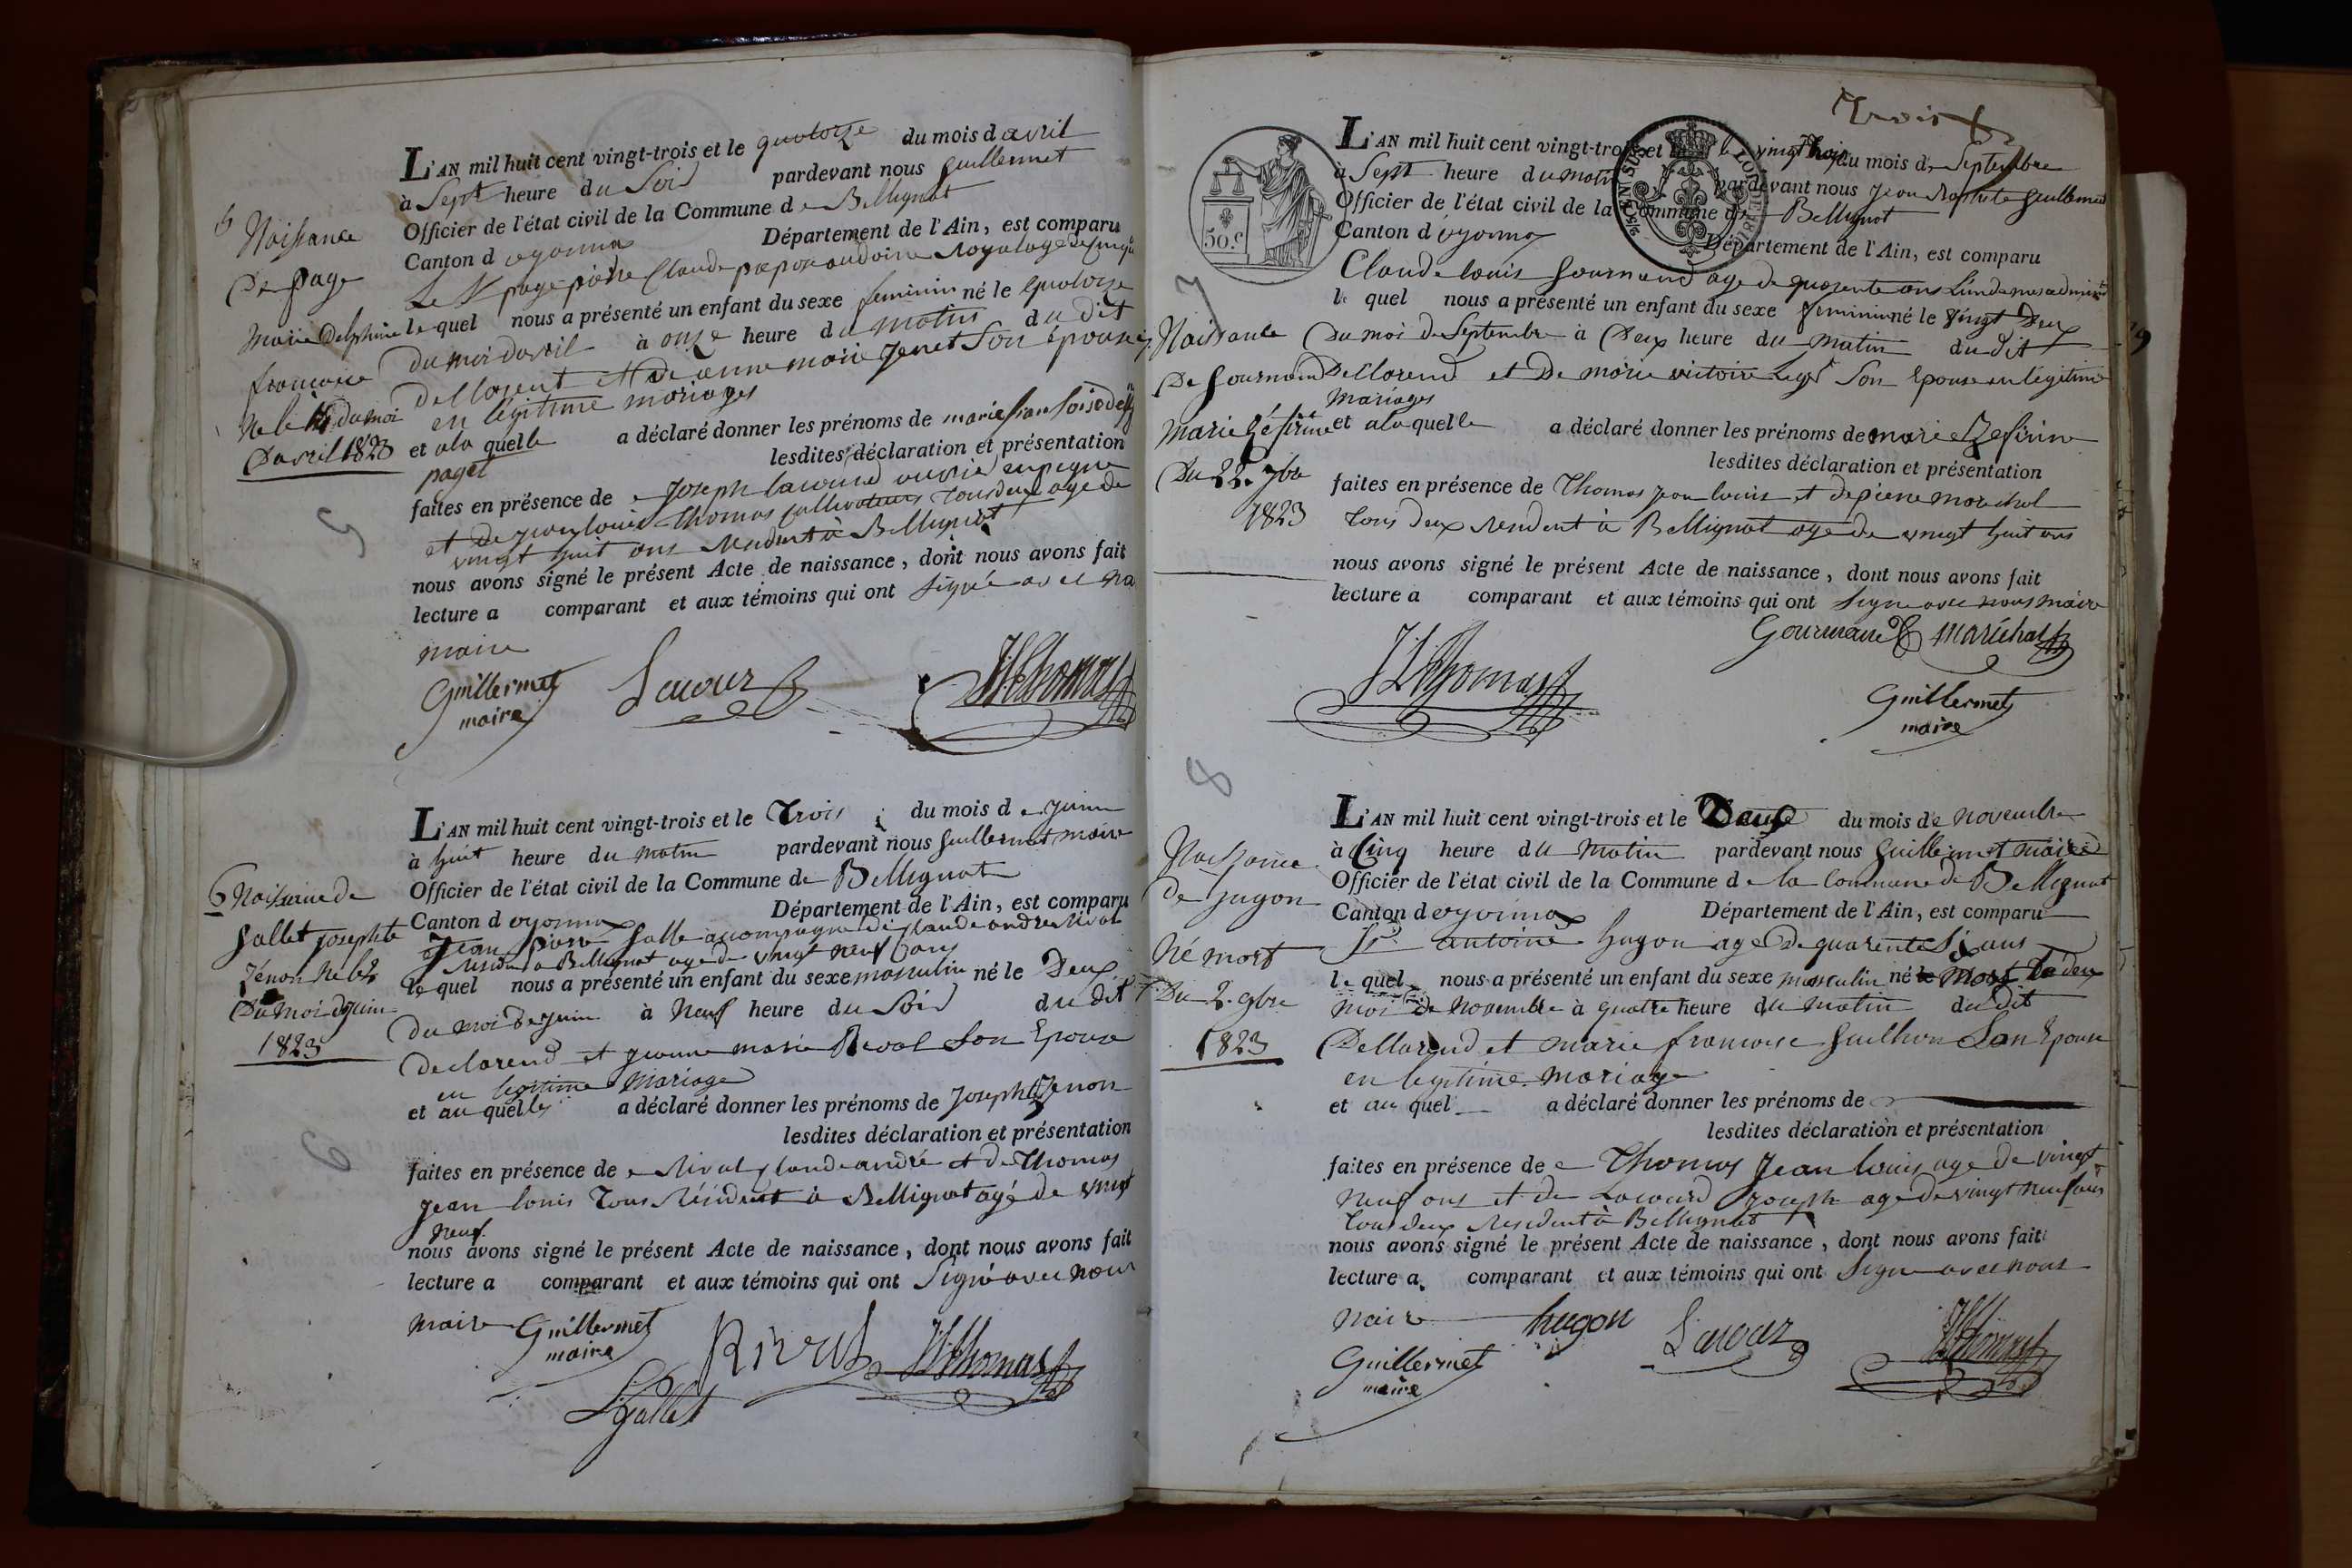 5
Naissance
De page
Marie Delphine
françoise
Né le 14 du moi
Davril 1823
L'AN mil huit cent vingt-trois et le quatorze du mois d avril
à Sept heure du Soir pardevant nous Guillermet
Officier de l'état civil de la Commune de Bellignat
Canton d oyonnax Département de l'Ain, est comparu
Le Sr page pierre Claude preposé au doine Royal age de
le quel nous a présenté un enfant du sexe feminin né le quatorze
du moi davril à onze heure du matin du dit
dellarent et de anne marie Jenet Son épouse
en légitime mariages
et ala quelle a déclaré donner les prénoms de marie fransoise
paget lesdites déclaration et présentation
faites en présence de Joseph lacourd ouvrié enpegne
et de jean louis Thomas cultivateurs Tousdeux age de
vingt huit ans Résident à Bellignat
nous avons signé le présent Acte de naissance, dont nous avons fait
lecture a comparant et aux témoins qui ont Signé avec
maire
Guillermet
maire
Lacour
JLThomas
5
6 Naissance de
Gallet josephte
Zénon Né le 2
Du moi de juin
1823
L'AN mil huit cent vingt-trois et le Trois du mois de juin
à huit heure du matin pardevant nous Guillermet maire
Officier de l'état civil de la Commune de Bellignat
Canton d oyonnax Département de l'Ain, est comparu
Jean pierre Galle accompagné de claude andre Rivol
Résident a Bellignat age de vingt neuf ans
le quel nous a présenté un enfant du sexe masculin né le Deux
du moi de juin à Neuf heure du Soir du dit
declarend et jeanne marie Reval Son Epouse
en légitime Mariage
et au quelle a déclaré donner les prénoms de Joseph Zenon
lesdites déclaration et présentation
faites en présence de Rival claude andré et de Thomas
jean louis Tous Résident à Bellignat agé de vingt
neuf
nous avons signé le présent Acte de naissance, dont nous avons fait
lecture a comparant et aux témoins qui ont Signé avec nous
maire
Guillermet
maire
JLThomas
Gallet
6
Trois
50.c
7
Naissance
De Gournand
Marie Zéfirine
Du 22. 7bre
1823
L'AN mil huit cent vingt-trois et le vingt trois du mois de Septembre
à Sept heure du matin pardevant nous Jean Baptiste Guillermet
Officier de l'état civil de la Commune de Bellignat
Canton d oyonnax Département de l'Ain, est comparu
Claude louis Gournand age de quarente ans
le quel nous a présenté un enfant du sexe feminin né le vingt Deux
Du moi de Septembre à Deux heure du matin du dit
Dellarend et De marie victoire Son Epouse en légitime
Mariages
et ala quelle a déclaré donner les prénoms de marie Zefirine
lesdites déclaration et présentation
faites en présence de Thomas Jean louis et de pierre marechal
Tous deux Rendent à Bellignat age de vingt huit ans
nous avons signé le présent Acte de naissance, dont nous avons fait
lecture a comparant et aux témoins qui ont Signe avec nous maire
Gournand marichal
JLThomas
Guillermet
maire
8
Naissance
de hugon
Né mort
Du 2. 9bre
1823
L'AN mil huit cent vingt-trois et le Deux du mois de Novembre
à Cinq heure du Matin pardevant nous Guillermet maire
Officier de l'état civil de la Commune de la Commune de Bellignat
Canton d oyonnax Département de l'Ain, est comparu
antoine hugon age De quarente Six ans
le quel nous a présenté un enfant du sexe masculin né le Mort le deux
moi de Novembre à quatre heure du matin du dit
Dellarend et marie francoise Guilhon Son Epouse
en legitime mariage
et au quel a déclaré donner les prénoms de
lesdites déclaration et présentation
faites en présence de Thomas Jean louis age de vingt
Neuf ans et de Lacourd joseph age de vingt neuf ans
Tous deux Resident à Bellignat
nous avons signé le présent Acte de naissance, dont nous avons fait
lecture a comparant et aux témoins qui ont Signe avec nous
Maire
hugon
Lacour
JLThomas
Guillermet
maire